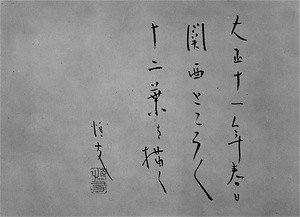 大正十一年春日
関西ところ〱
十二葉を描く
恒友